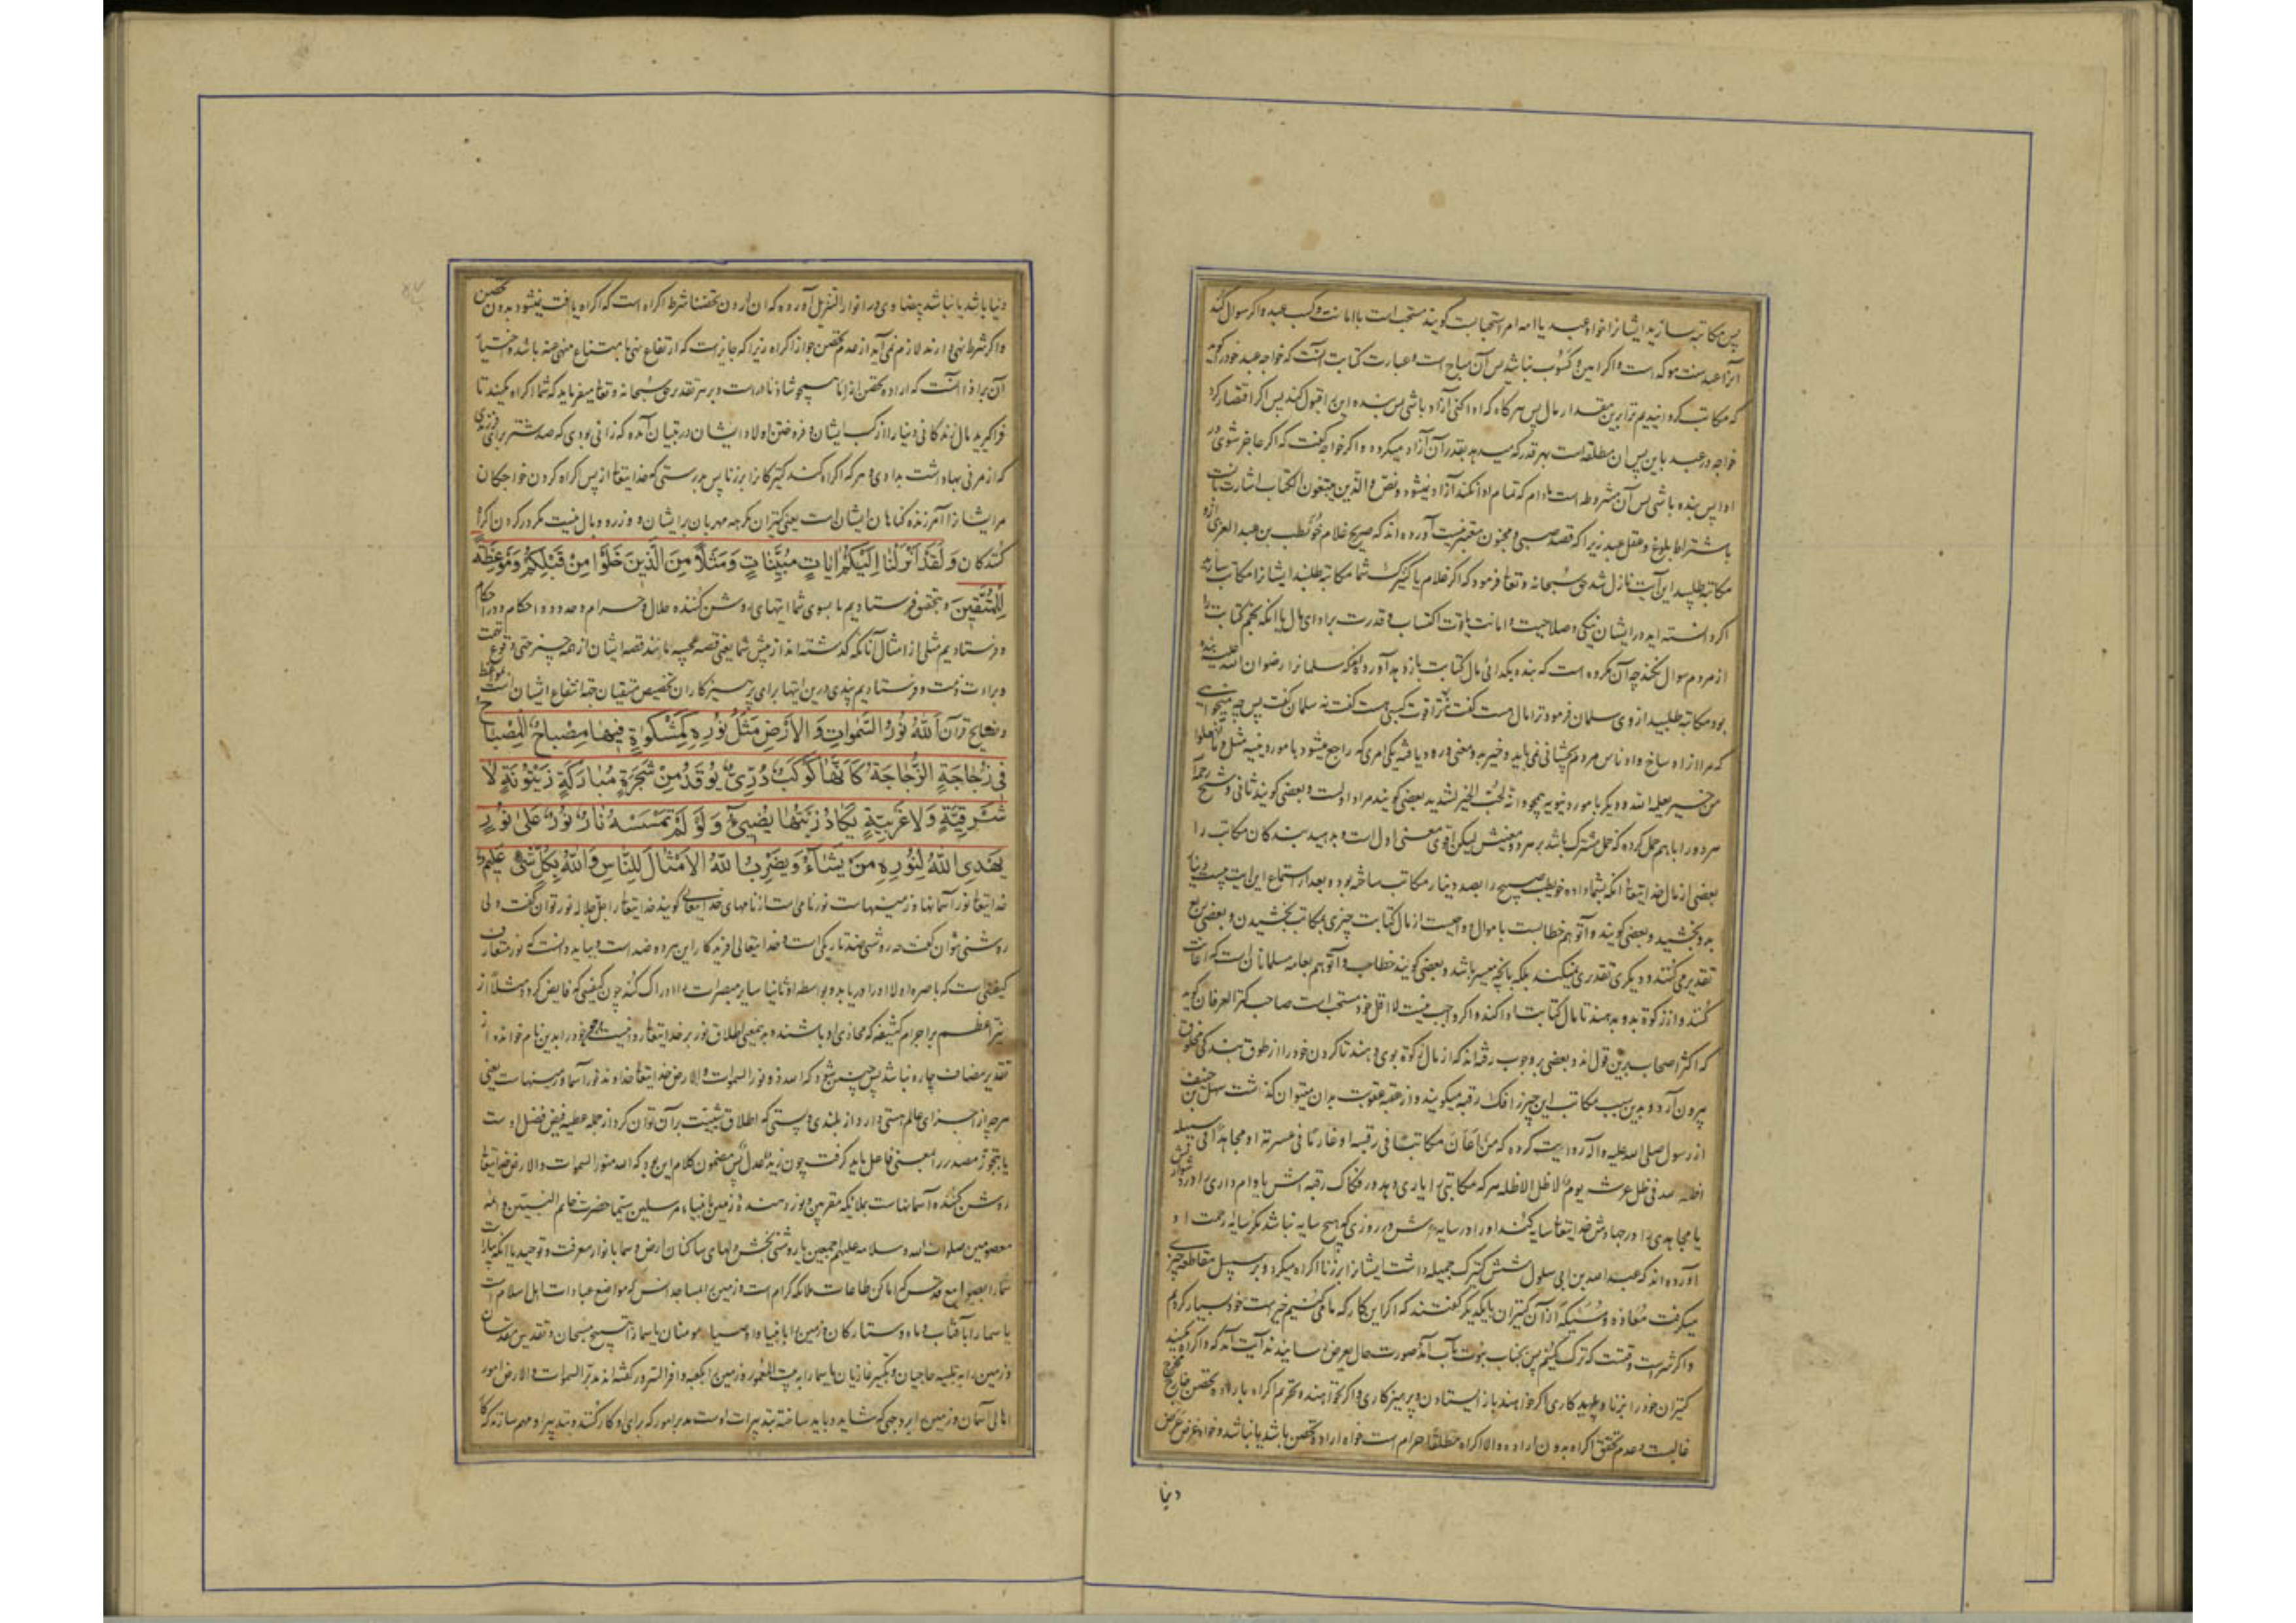 پس مکاتبه سازید ایشانرا خواه عبد یا امه امر استحبابست کویند مستحب است با امانت وکسب عبد و اکر سوال کند
آنرا عبد سنت موکد است و اکر امین و کسوب نباشد پس آن مباح است و عبارت کتابت آنست که خواجه عبد خود را کوید
که مکاتب کردانیدیم ترا برین مقدار مال پس هرکاه که ادا کنی آزاد باشی پس بنده این را قبول کند پس اکر اقتصار کرد
خواجه در عبد باین پس ان مطلقه است بهر قدر که میدهد بقدر آن آزاد میکردد و اکر خواجه کفت که اکر عاجز شوی در
ادا پس بنده باشی پس آن مشروطه است مادام که تمام ادا نکند آزاد نمیشود و نص والذین یبتغون الکتاب اشارتست
باشتراط بلوغ و عقل عبد زیرا که قصد صبی و مجنون معتبر نیست آورده اند که صبیح غلام حویطب بن عبد العزی ازو
مکاتبه طلبید این آیت نازل شد حق سبحانه و تعا فرمود که اکر غلام یا کنیزک شما مکاتبه طلبند ایشانرا مکاتب سازید
اکر دانسته اید در ایشان نیکی و صلاحیت و امانت یا قوت اکتساب و قدرت بر ادای مال یا انکه نجم کتابت را
از مردم سوال نکند چه آن مکروه است که بنده بکدائی مال کتابت بازدهد آورده اند که سلمانرا رضوان الله علیه بنده
بود مکاتبه طلبید از وی سلمان فرمود ترا مال هست کفت نه ترا قوت کسبی هست کفت نه سلمان کفت پس چه میخواهی
که مرا از اوساخ و ادناس مردم بچشانی نمی باید و خیر بدو معنی ورود یافته یکی امری که راجع میشود بامور دینیه مثل و ما تفعلوا
من خیر یعلمه الله و دیکر بامور دنیویه همچو و انه لحب الخیر لشدید بعضی کویند مراد اولست و بعضی کویند ثانی و شیخ رحمه
هر دو را با هم حمل کرده که حمل مشترک باشد بر هر دو معنیش لیکن اقوی معنی اول است و بدهید بندکان مکاتب را
بعضی از مال خدایتعا انکه بشما داده حویطب صبیح را بصد دینار مکاتب ساخته بود و بعد از استماع این ایت بیست دینار
بدو بخشید و بعضی کویند و آتوهم خطابست با موالی و واجبست از مال کتابت چیزی بمکاتب بخشیدن و بعضی بربع
تقدیر می کنند و دیکری تقدیری نمیکند بلکه بانچه میسر باشد و بعضی کویند خطاب و آتوهم بعامه مسلمانان است که اعانت
کنند و از زکوة بدو بدهند تا مال کتابت ادا کند و اکر واجب نیست لا اقل خود مستحب است صاحب کنز العرفان کوید
که اکثر اصحاب برین قول اند و بعضی بر وجوب رفته اند که از مال زکوة بوی دهند تا کردن خود را از طوق بندکی مخلوق
بیرون آرد و بدین سبب مکاتب این چیز را فک رقبه میکویند و از عقبه عقوبت بدان میتوان کذشت سهل بن حنیف
از رسول صلی الله علیه و آله روایت کرده که من اعان مکاتبا فی رقبه او غارما فی عسرته او مجاهدا فی سبیله
اظله الله فی ظل عرشه یوم لا ظل الا ظله هر که مکاتبی را یاری دهد در فکاک رقبه اش یا وام داری را در دشواریش
یا مجاهدی را در جهادش خدایتعا سایه کند او را در سایه عرش در روزی که هیچ سایه نباشد مکر سایه رحمت او
آورده اند که عبد الله بن ابی سلول شش کنیزک جمیله داشت ایشانرا برزنا اکراه میکرد و بر سبیل مقاطعه چیزی
میکرفت معاذه و مسیکه از آن کنیزان با یکدیکر کفتند که اکر این کار که ما می کنیم خیر است خود بسیار کردیم
و اکر شر است وقتست که ترک کنیم پس بجناب نبوت مآب آمده صورت حال بعرض رسانیدند آیت آمد که و اکراه مکنید
کنیزان خود را بر زنا و پلید کاری اکر خواهند باز ایستادن و پرهیزکاری و اکر نخواهند و تحریم اکراه باراده تحصن خارج مخرج
غالبست و عدم تحقق اکراه بدون اراده و الا اکراه مطلقا حرام است خواه اراده تحصن باشد یا نباشد و خواه غرض عرض
دنیا
دنیا باشد یا نباشد بیضاوی در انوار التنزیل آورده که ان اردن تحصنا شرط اکراه است که اکراه یافت نمیشود بدون تحصن
و اکر شرط نهی دارند لازم نمی آید از عدم تحصن جواز اکراه زیرا که جایز است که ارتفاع نهی بامتناع منهی عنه باشد و اختیار
آن بر اذا آنست که اراده تحصن از اماء همچو شاذ نادر است و بر هر تقدیر حق سبحانه و تعا میفرماید که شما اکراه میکنید تا
فرا کیرید مال زندکانی دنیا را از کسب ایشان و فروختن اولاد ایشان در تبیان آمده که زانی بودی که صد شتر برای فرزندی
که از مزنی بها داشت بدادی و هر که اکراه کند کنیزکانرا برزنا پس بدرستی که خدایتعا از پس اکراه کردن خواجکان
مر ایشانرا آمرزنده کناهان ایشان است یعنی کنیزان مکرهه مهربان بر ایشان و وزر و وبال نیست مکر در کردن اکراه
کنندکان وَلَقَدْ اَنْزَلْنَا اِلَيْكُمْ اٰيَاتٍ مُبَيِّنَاتٍ وَمَثَلاً مِنَ الَّذينَ خَلَوْا مِنْ قَبْلِكُمْ وَمَوْعِظَةً
لِلْمُتَّقينَ و بتحقیق فرستادیم ما بسوی شما ایتهای روشن کننده حلال و حرام و حدود و احکام
و فرستادیم مثلی از امثال آنانکه کذشته اند از پیش شما یعنی قصه عجیبه مانند قصه ایشان
و فرستادیم پندی درین ایتها برای پرهیزکاران تخصیص متقیان جهة انتفاع ایشان است بمواعظ
و نصایح قرآن اَللّٰهُ نُورُ السَّمٰوَاتِ وَ الْاَرْضِ مَثَلُ نُورِهِ كَمِشْكٰوةٍ فِيهَا مِصْبَاحٌ اَلْمِصْبَاحُ
فِي زُجَاجَةٍ اَلزُّجَاجَةُ كَاَنَّهَا كَوْكَبٌ دُرِّيٌّ يُوقَدُ مِنْ شَجَرَةٍ مُبَارَكَةٍ زَيْتُونَةٍ لَا
شَرْقِيَّةٍ وَلَا غَرْبِيَّةٍ يَكَادُ زَيْتُهَا يُضِيءُ وَلَوْ لَمْ تَمْسَسْهُ نَارٌ نُورٌ عَلٰى نُورٍ
يَهْدِي اللّٰهُ لِنُورِهِ مَنْ يَشَاءُ وَيَضْرِبُ اللّٰهُ الْاَمْثَالَ لِلنَّاسِ وَاللّٰهُ بِكُلِّ شَيْءٍ عَلِيمٌ
خدایتعا نور آسمانها و زمینهاست نور نامی است از نامهای خدایتعالی کویند خدایتعا را جل جلاله نور توان کفت ولی
روشنی نتوان کفت چه روشنی ضد تاریکی است و خدایتعالی افریدکار این هر دو ضد است و بباید دانست که نور متعارف
کیفیتی است که باصره اولا او را دریابد و بواسطه او ثانیا سایر مبصرات را ادراک کند چون کیفیتی که فایض کردد مثلا از
نیر اعظم بر اجرام کثیفه که محاذی او باشند و بدین معنی اطلاق نور بر خدایتعا روا نیست و چون خود را بدین نام خوانده از
تقدیر مضاف چاره نباشد پس چنین شود که الله ذو نور السموات والارض خدایتعا خداوند نور آسمان و زمینهاست یعنی
هر چه از اجزای عالم هستی دارد از بلندی و پستی که اطلاق شیئیت بر آن توان کرد از جمله عطیه فیض فضل اوست
یا بتجوز مصدر را بمعنی فاعل باید کرفت چون زید عدل پس مضمون کلام این بود که الله منور السموات والارض خدایتعا
روشن کننده آسمانهاست بملائکه مقربین و نور دهنده زمین بانبیاء مرسلین سیما حضرت خاتم النبیین و ائمه
معصومین صلوات الله و سلامه علیهم اجمعین یا روشنی بخش دلهای ساکنان ارض و سما بانوار معرفت و توحید یا انکه بیاراست
سما را بصوامع قدس که اماکن طاعات ملائکه کرام است و زمین را بمساجد انس که مواضع عبادات اهل اسلام است
یا سما را بآفتاب و ماه و ستارکان و زمین را بانبیاء و اوصیاء و مومنان یا سما را بتسبیح مسبحان و تقدیس مقدسان
و زمین را به تلبیه حاجیان و تکبیر غازیان یا سما را به بیت المعمور و زمین را بکعبه و در کفته اند مدبر السموات والارض امور
اهالی آسمان و زمین را بر وجهی که شاید و باید ساخته تدبیرات اوست مدبر امور که برای او کار کنند و بتدبیر او مهم سازند که